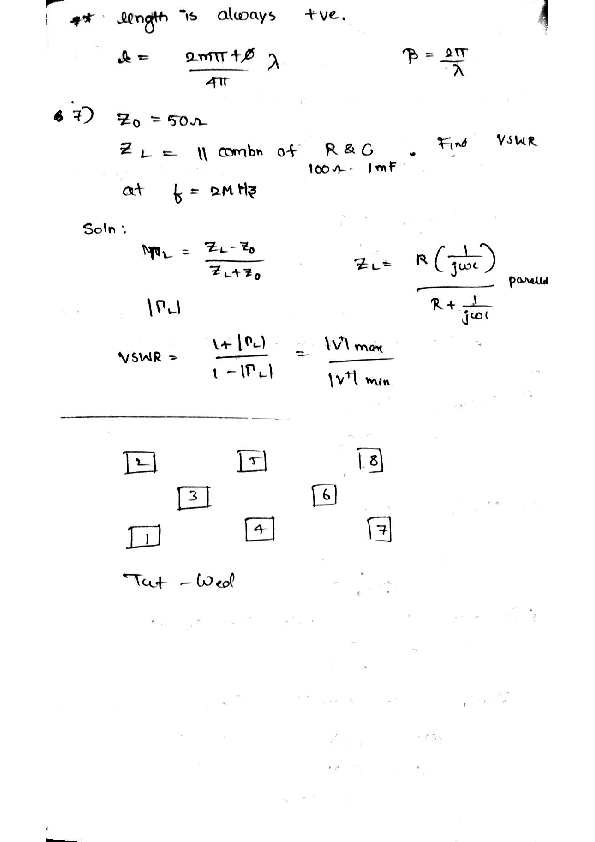 ** length is always +ve.
l = (2mπ + φ)/4π λ     β = 2π/λ
7) Z0 = 50Ω
ZL = || combn of R & C . Find VSWR
100Ω 1mF
at f = 2MHz
Soln :
ΓL = (ZL - Z0)/(ZL + Z0)     ZL = R(1/jωc)/(R + 1/jωc) parelled
|ΓL|
VSWR = (1 + |ΓL|)/(1 - |ΓL|) = |V| max/|V+| min
2 5 8
3 6
1 4 7
Tut - Wed